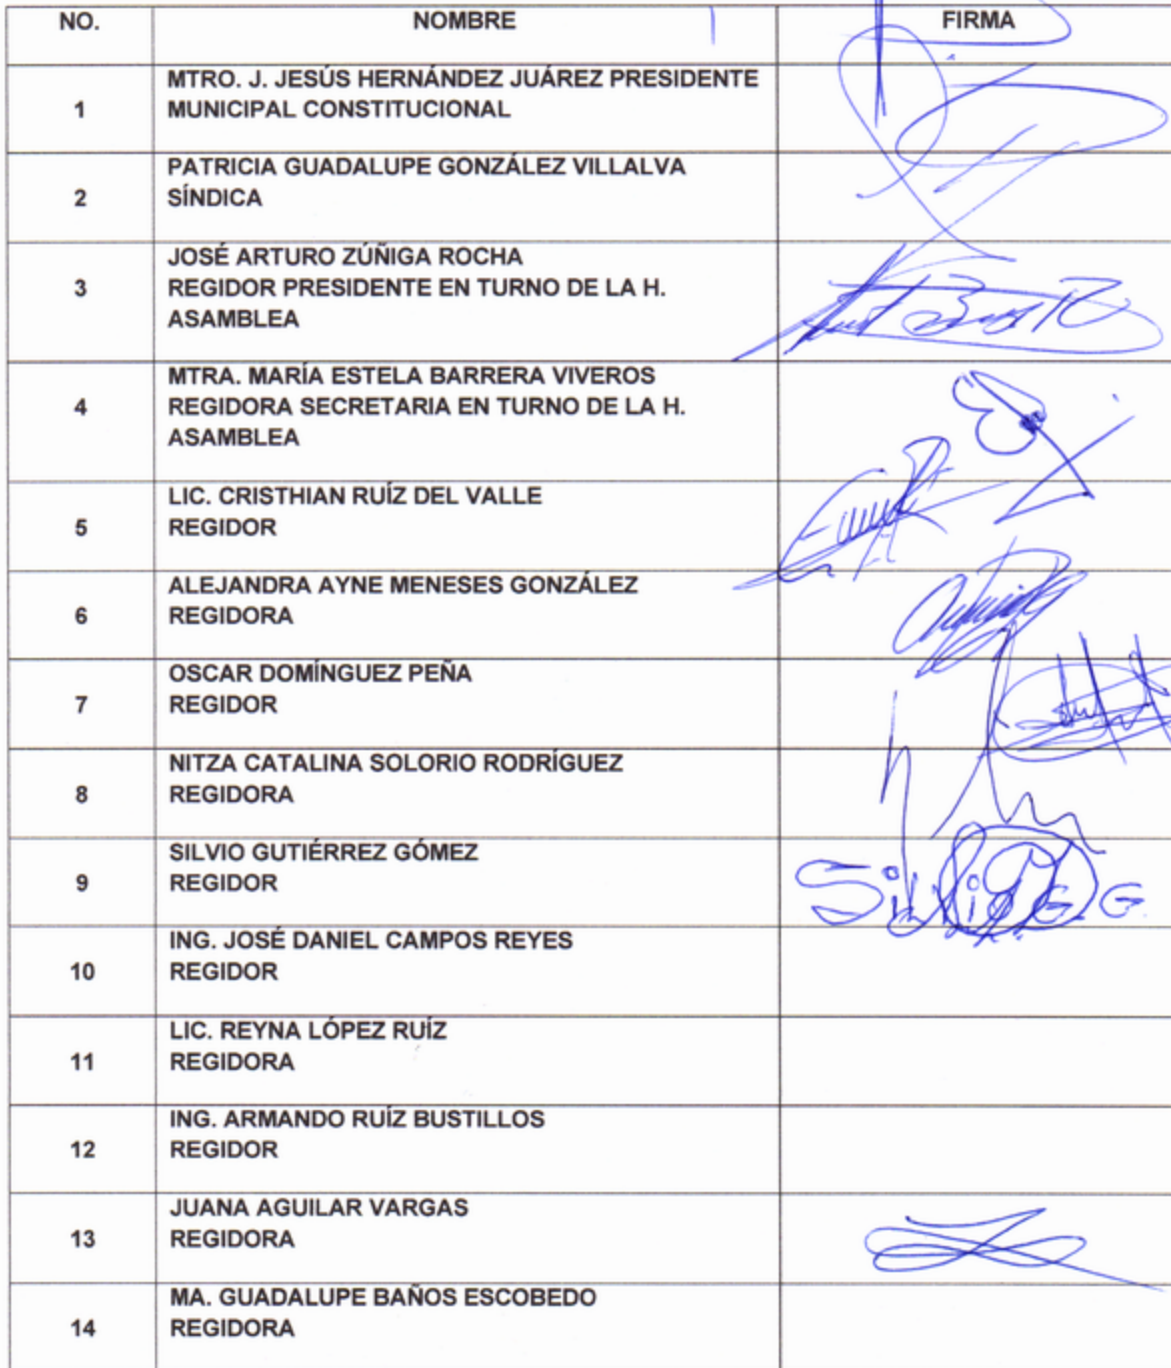 NO. NOMBRE FIRMA
MTRO. J. JESÚS HERNÁNDEZ JUÁREZ PRESIDENTE
1 MUNICIPAL CONSTITUCIONAL
PATRICIA GUADALUPE GONZÁLEZ VILLALVA
2 SÍNDICA
JOSÉ ARTURO ZÚÑIGA ROCHA
3 REGIDOR PRESIDENTE EN TURNO DE LA H.
ASAMBLEA
MTRA. MARÍA ESTELA BARRERA VIVEROS
4 REGIDORA SECRETARIA EN TURNO DE LA H.
ASAMBLEA
LIC. CRISTHIAN RUÍZ DEL VALLE
5 REGIDOR
ALEJANDRA AYNE MENESES GONZÁLEZ
6 REGIDORA
OSCAR DOMÍNGUEZ PEÑA
7 REGIDOR
NITZA CATALINA SOLORIO RODRÍGUEZ
8 REGIDORA
SILVIO GUTIÉRREZ GÓMEZ
9 REGIDOR Silvio G G
ING. JOSÉ DANIEL CAMPOS REYES
10 REGIDOR
LIC. REYNA LÓPEZ RUÍZ
11 REGIDORA
ING. ARMANDO RUÍZ BUSTILLOS
12 REGIDOR
JUANA AGUILAR VARGAS
13 REGIDORA
MA. GUADALUPE BAÑOS ESCOBEDO
14 REGIDORA